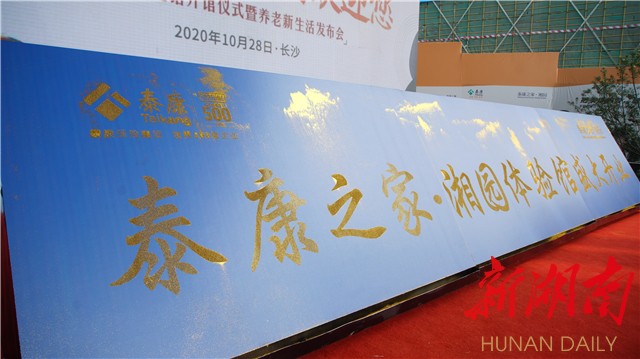 迎您
开馆仪式暨养老新生活发布会」
2020年10月28日·长沙
泰康
泰康
Taikang
500
泰康之家·湘园体验馆盛大开业
新湖南
HUNAN DAILY